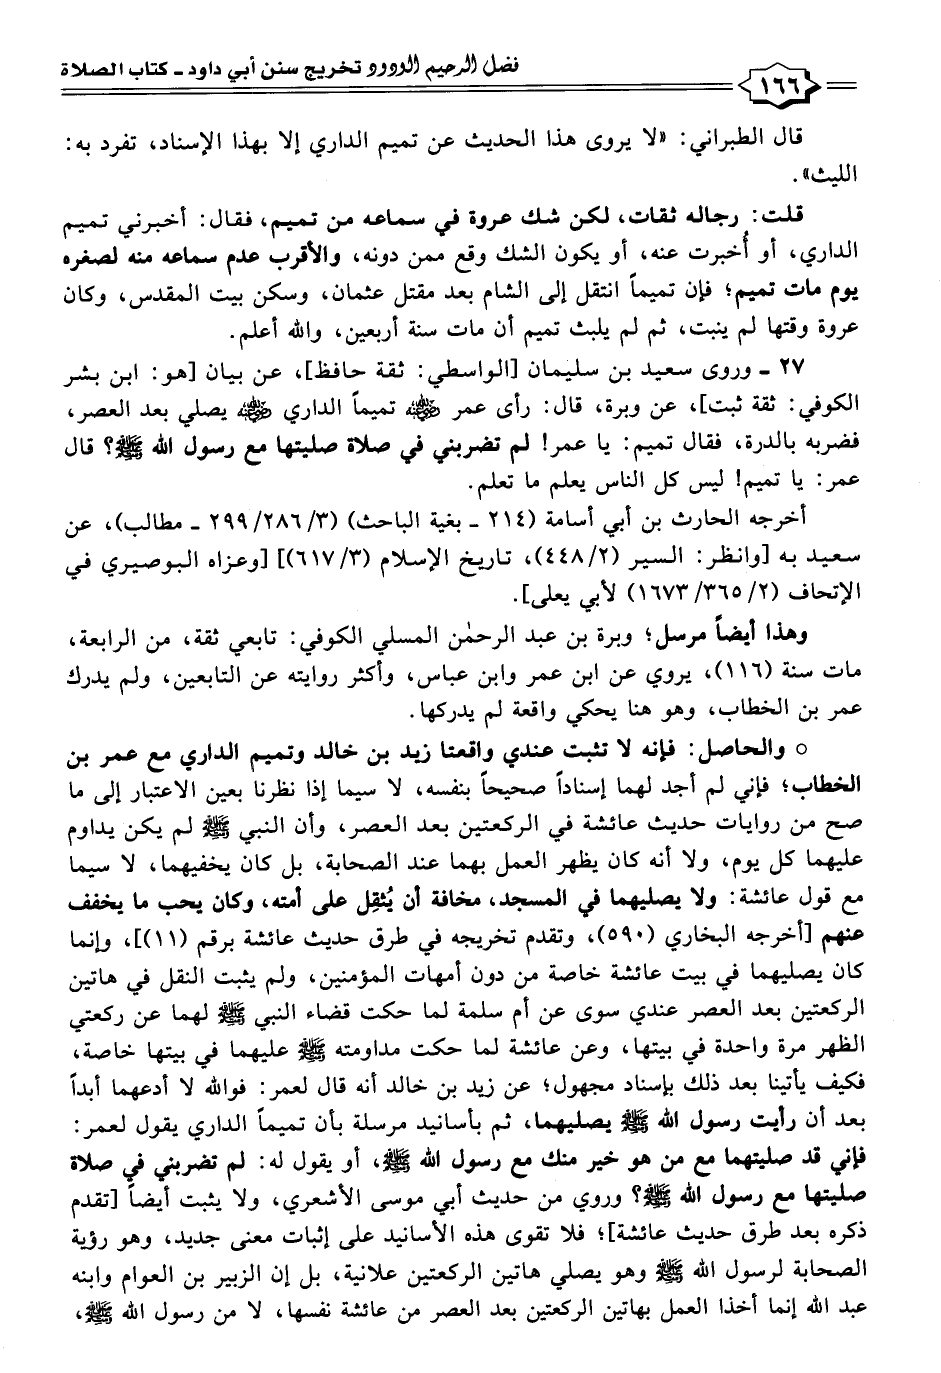 فضل الرحيم الودود تخريج سنن أبي داود - كتاب الصلاة
١٦٦
قال الطبراني: «لا يروى هذا الحديث عن تميم الداري إلا بهذا الإسناد، تفرد به:
الليث».
قلت: رجاله ثقات، لكن شك عروة في سماعه من تميم، فقال: أخبرني تميم
الداري، أو أُخبرت عنه، أو يكون الشك وقع ممن دونه، والأقرب عدم سماعه منه لصغره
يوم مات تميم؛ فإن تميماً انتقل إلى الشام بعد مقتل عثمان، وسكن بيت المقدس، وكان
عروة وقتها لم ينبت، ثم لم يلبث تميم أن مات سنة أربعين، والله أعلم.
٢٧ - وروى سعيد بن سليمان [الواسطي: ثقة حافظ]، عن بيان [هو: ابن بشر
الكوفي: ثقة ثبت]، عن وبرة، قال: رأى عمر رضي الله عنه تميماً الداري رضي الله عنه يصلي بعد العصر،
فضربه بالدرة، فقال تميم: يا عمر! لم تضربني في صلاة صليتها مع رسول الله ﷺ؟ قال
عمر: يا تميم! ليس كل الناس يعلم ما تعلم.
أخرجه الحارث بن أبي أسامة (٢١٤ - بغية الباحث) (٣/ ٢٨٦/ ٢٩٩ - مطالب)، عن
سعيد به [وانظر: السير (٢/ ٤٤٨)، تاريخ الإسلام (٣/ ٦١٧)] [وعزاه البوصيري في
الإتحاف (٢/ ٣٦٥/ ١٦٧٣) لأبي يعلى].
وهذا أيضاً مرسل؛ وبرة بن عبد الرحمٰن المسلي الكوفي: تابعي ثقة، من الرابعة،
مات سنة (١١٦)، يروي عن ابن عمر وابن عباس، وأكثر روايته عن التابعين، ولم يدرك
عمر بن الخطاب، وهو هنا يحكي واقعة لم يدركها.
○ والحاصل: فإنه لا تثبت عندي واقعتا زيد بن خالد وتميم الداري مع عمر بن
الخطاب؛ فإني لم أجد لهما إسناداً صحيحاً بنفسه، لا سيما إذا نظرنا بعين الاعتبار إلى ما
صح من روايات حديث عائشة في الركعتين بعد العصر، وأن النبي ﷺ لم يكن يداوم
عليهما كل يوم، ولا أنه كان يظهر العمل بهما عند الصحابة، بل كان يخفيهما، لا سيما
مع قول عائشة: ولا يصليهما في المسجد، مخافة أن يُثقِل على أمته، وكان يحب ما يخفف
عنهم [أخرجه البخاري (٥٩٠)، وتقدم تخريجه في طرق حديث عائشة برقم (١١)]، وإنما
كان يصليهما في بيت عائشة خاصة من دون أمهات المؤمنين، ولم يثبت النقل في هاتين
الركعتين بعد العصر عندي سوى عن أم سلمة لما حكت قضاء النبي ﷺ لهما عن ركعتي
الظهر مرة واحدة في بيتها، وعن عائشة لما حكت مداومته ﷺ عليهما في بيتها خاصة،
فكيف يأتينا بعد ذلك بإسناد مجهول؛ عن زيد بن خالد أنه قال لعمر: فوالله لا أدعهما أبداً
بعد أن رأيت رسول الله ﷺ يصليهما، ثم بأسانيد مرسلة بأن تميماً الداري يقول لعمر:
فإني قد صليتهما مع من هو خير منك مع رسول الله ﷺ، أو يقول له: لم تضربني في صلاة
صليتها مع رسول الله ﷺ؟ وروي من حديث أبي موسى الأشعري، ولا يثبت أيضاً [تقدم
ذكره بعد طرق حديث عائشة]؛ فلا تقوى هذه الأسانيد على إثبات معنى جديد، وهو رؤية
الصحابة لرسول الله ﷺ وهو يصلي هاتين الركعتين علانية، بل إن الزبير بن العوام وابنه
عبد الله إنما أخذا العمل بهاتين الركعتين بعد العصر من عائشة نفسها، لا من رسول الله ﷺ،